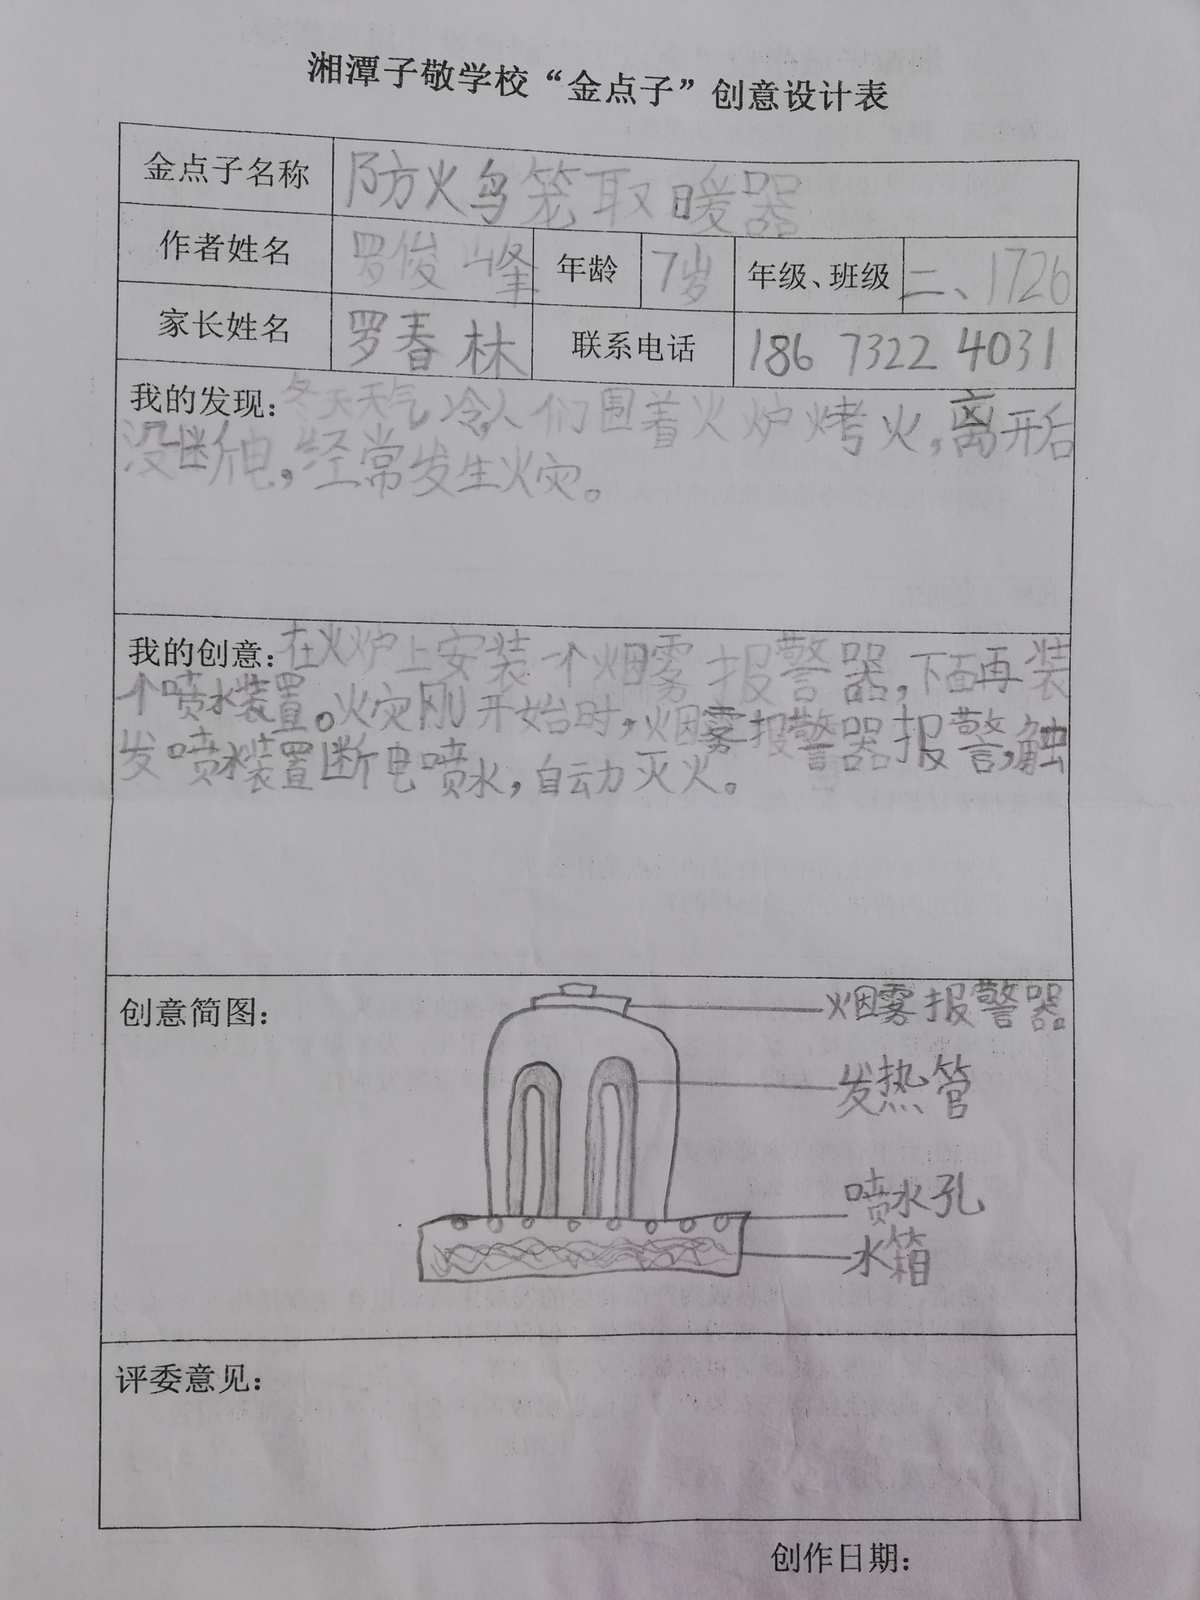 湘潭子敬学校“金点子”创意设计表
金点子名称 防火鸟笼取暖器
作者姓名 罗俊峰 年龄 7岁 年级、班级 二、1726
家长姓名 罗春林 联系电话 186 7322 4031
我的发现：冬天天气冷，人们围着火炉烤火，离开后
没断电，经常发生火灾。
我的创意：在火炉上安装一个烟雾报警器，下面再装
个喷水装置。火灾刚开始时，烟雾报警器报警，触
发喷水装置断电喷水，自动灭火。
创意简图：
烟雾报警器
发热管
喷水孔
水箱
评委意见：
创作日期：